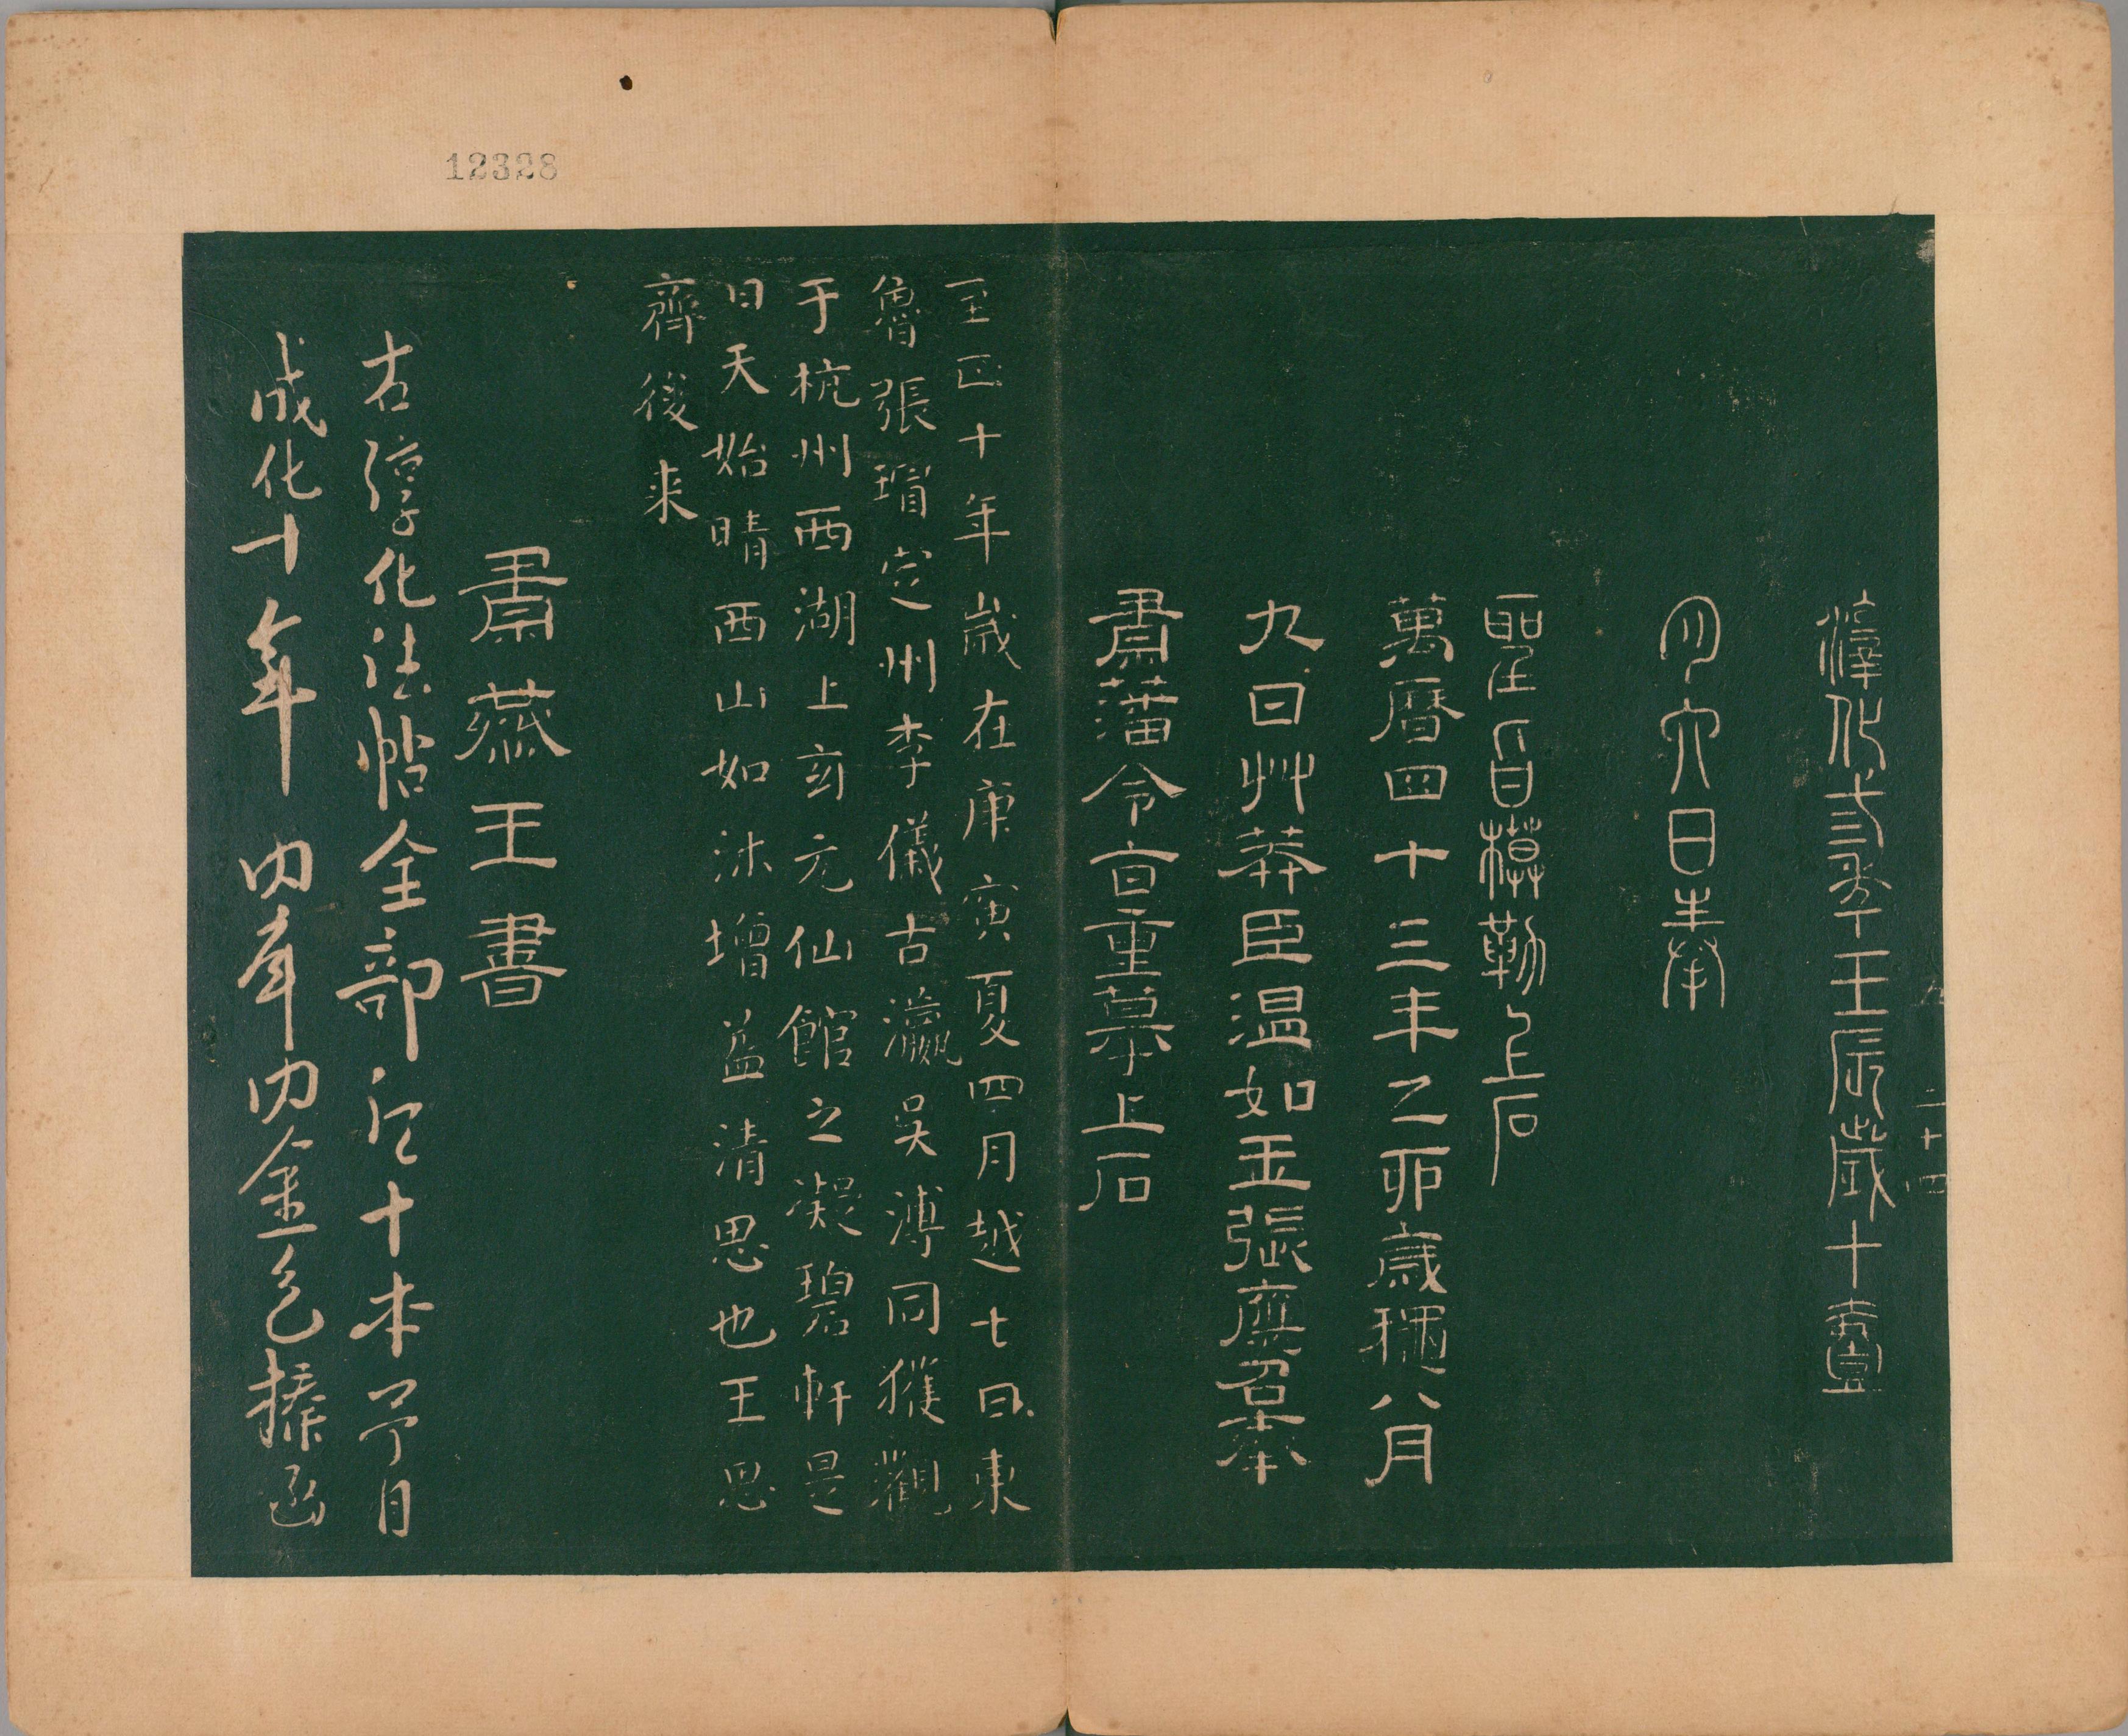 12328
九
二十四
淳化弍秊壬辰歲十壹
月六日奉
聖旨模勒上石
萬曆四十三年乙卯歲穐八月
九日艸莽臣温如玉張應召奉
肅藩令旨重摹上石
至正十年歲在庚寅夏四月越七日東
魯張瑻定州李儀古瀛吳溥同獲觀
于杭州西湖上玄元仙館之凝碧軒是
日天始晴西山如沐增益清思也王思
齊後来
肅恭王書
右淳化法帖全部　十本　月
成化十年　　　金